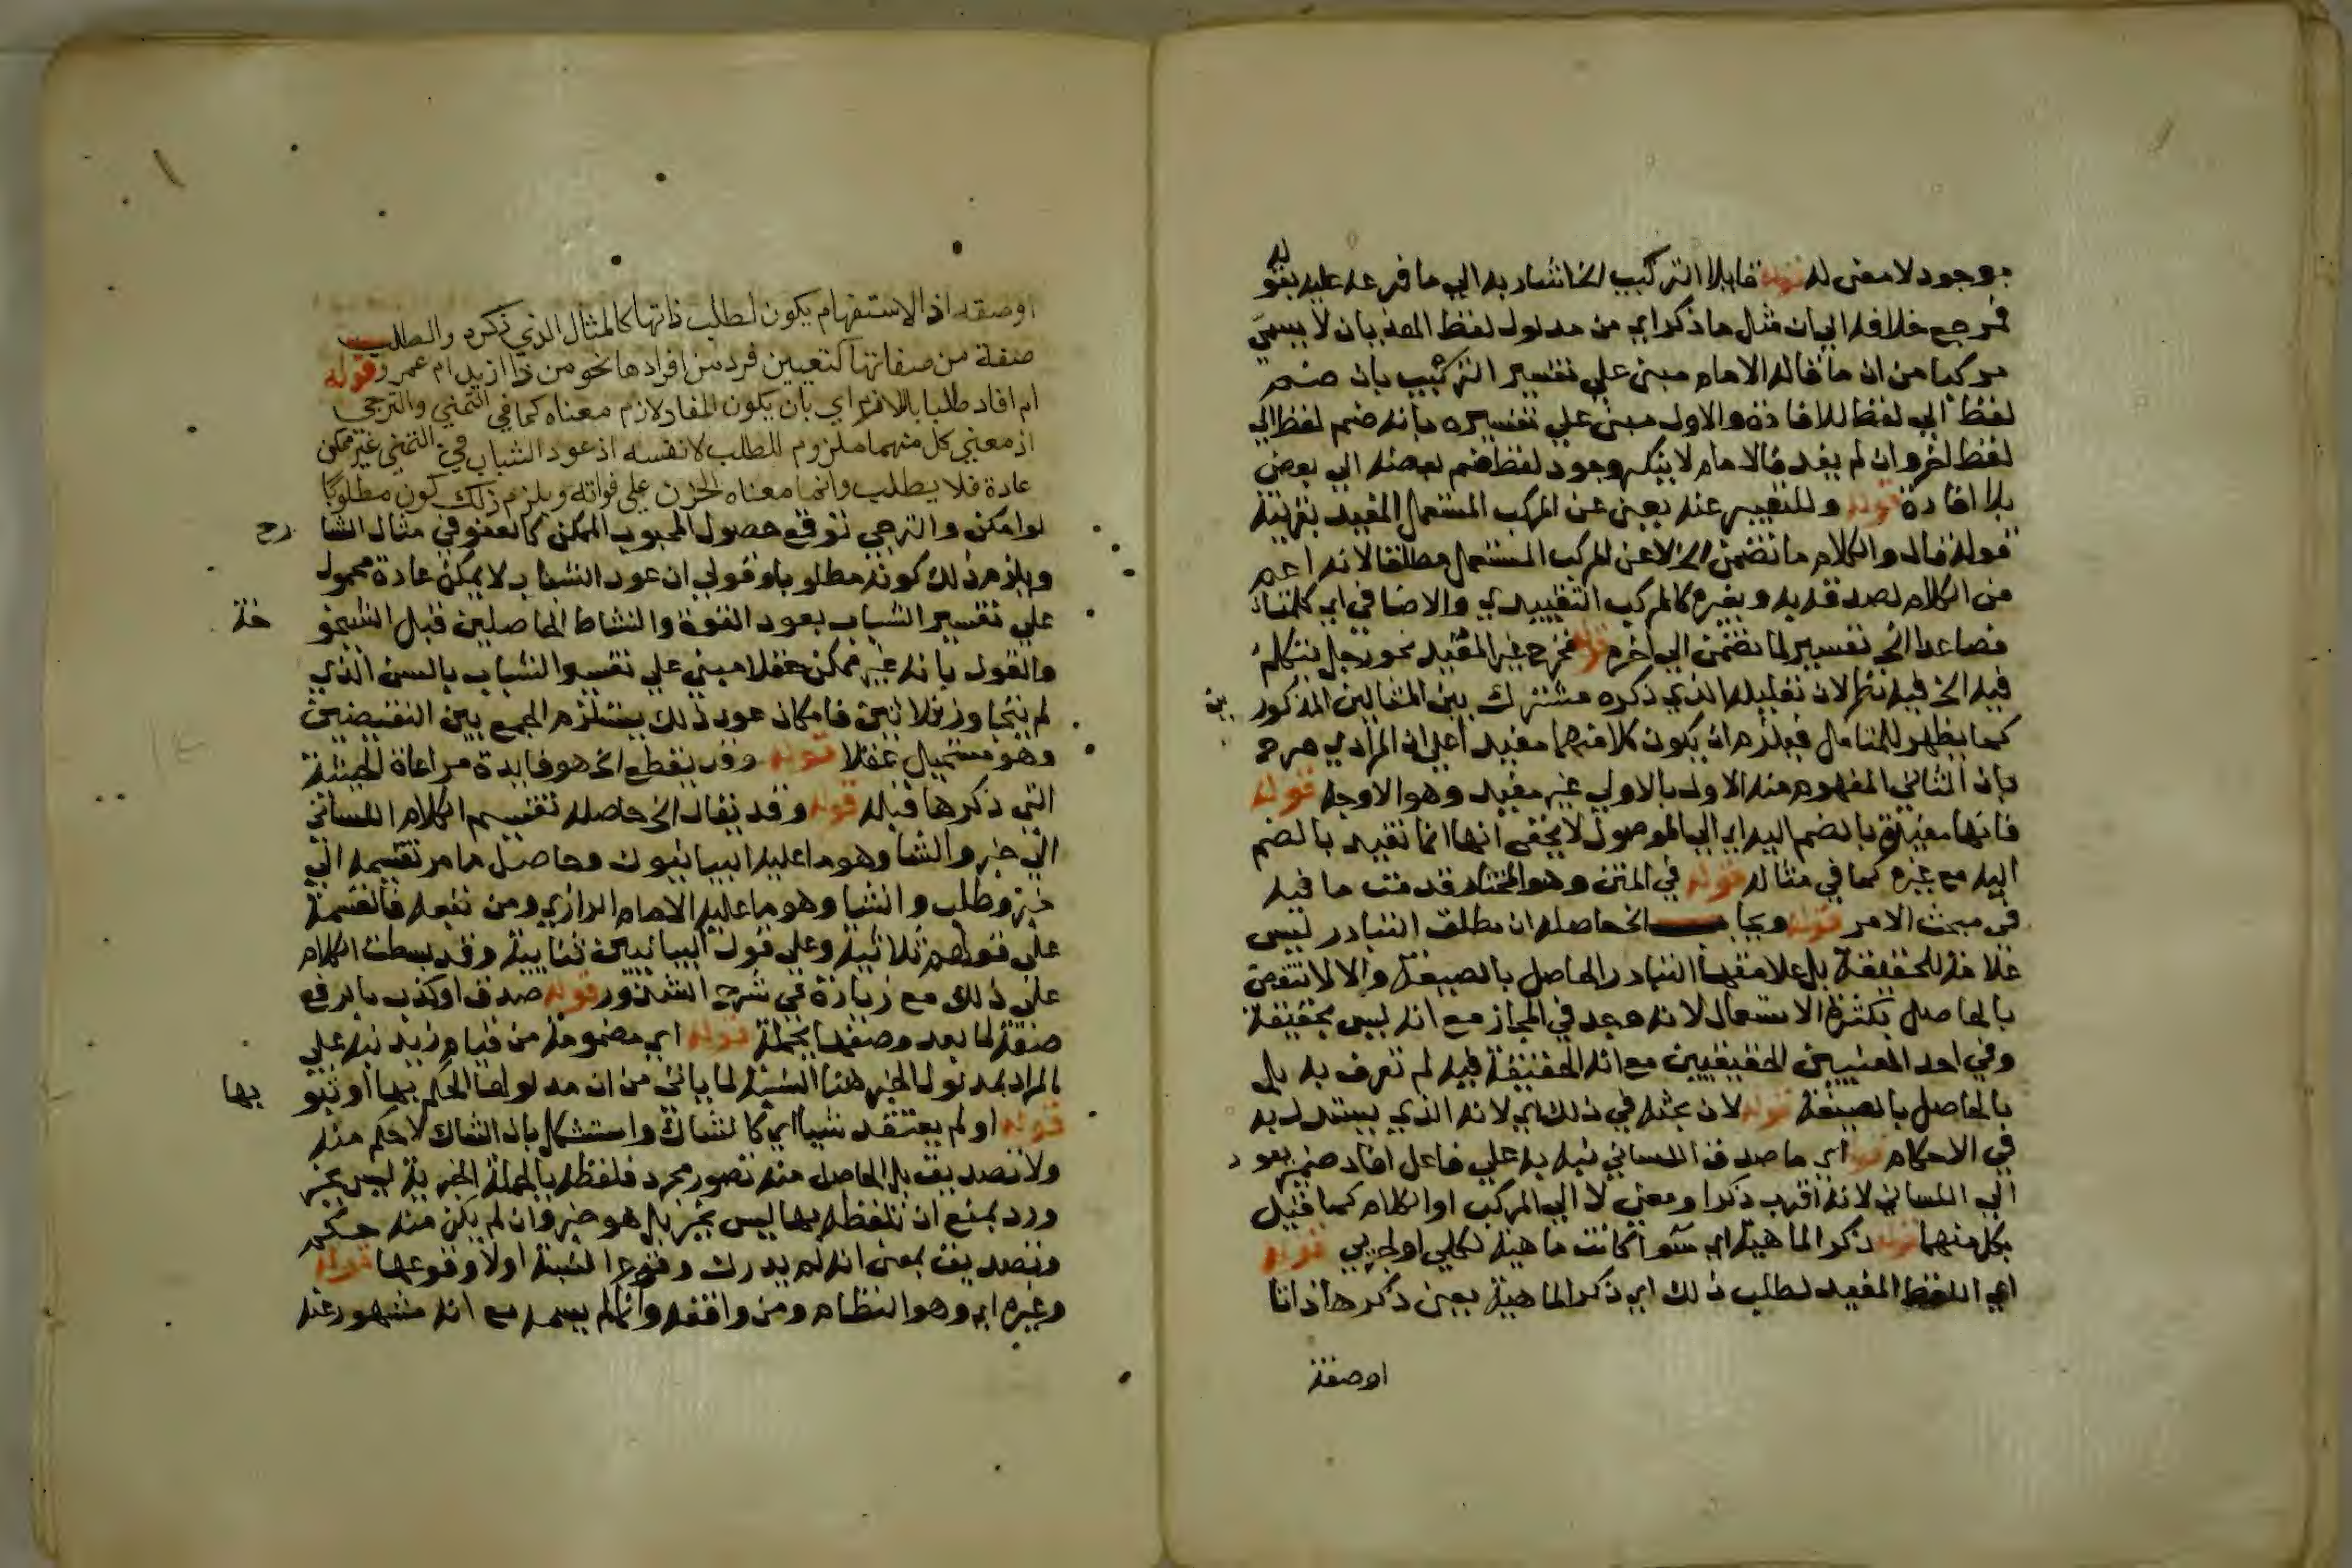 موجود لا معنى له قوله قايلا التركيب الخ اشار به الي ما فرعه عليه بقوله
فمرجع خلافه الي ان مثل ما ذكر اي من مدلول لفظ الهذيان لا يسمي
مركبا من ان ما قاله الامام مبني علي تفسير التركيب بان ضم
لفظ الي لفظ للافادة والاول مبني علي تفسيره بانه ضم لفظ الي
لفظ اخر وان لم يفد فالامام لا ينكر وجود لفظ ضم بعضه الي بعض
بلا افادة قوله وللتعبير عنه يعني عن المركب المستعمل المفيد بقرينة
قوله قال والكلام ما تضمن الخ لا عن المركب المستعمل مطلقا لانه اعم
من الكلام لصدقه به وبغيره كالمركب التقييدي والاضافي اي كلمتان
فصاعدا الخ تفسير لما تضمن الي اخره قوله فخرج غير المفيد نحو رجل يتكلم
فيه الخ فيه نظر لان تعليله الذي ذكره مشترك بين المثالين المذكورين
كما يظهر للمتامل فيلزم ان يكون كلا منهما مفيد اعلي ان المرادي صرح
بان الثاني المفهوم منه الاول بالاولي غير مفيد وهو الاوجه قوله
فانها مفيدة بالضم اليه اي الي الموصول لا يخفى انها انما تفيد بالضم
اليه مع غيره كما في مثاله قوله في المتن وهو المختار قدمت ما فيه
في مبحث الامر قوله ويجاب الخ حاصله ان مطلق التبادر ليس
علامة للحقيقة بل علامتها التبادر الحاصل بالصيغة والا لانتقض
بالحاصل بكثرة الاستعمال لانه وجد في المجاز مع انه ليس بحقيقة
وفي احد المعنيين الحقيقيين مع انه الحقيقة فيه لم تعرف به بل
بالحاصل بالصيغة قوله لان بحثه في ذلك اي لانه الذي يستدل به
في الاحكام قوله اي ما صدق اللساني نبه به علي فاعل افاد ضمير يعود
الي اللساني لانه اقرب ذكرا ومعني لا الي المركب او الكلام كما قيل
بكل منهما قوله ذكر الماهية اي سوا كانت ماهية لكلي او لجزيي قوله
اي اللفظ المفيد لطلب ذلك اي ذكر الماهية يعني ذكرها ذاتا
اوصفة
اوصفة اذ الاستفهام يكون لطلب ذاتها كالمثال الذي ذكره والطلب
صفة من صفاتها كتعيين فرد من افرادها نحو من ذا ازيد ام عمرو قوله
ام افاد طلبا باللازم اي بان يكون المفاد لازم معناه كما في التمني والترجي
اذ معني كل منهما ملزوم للطلب لا نفسه اذ عود الشباب في التمني غير ممكن
عادة فلا يطلب وانما معناه الحزن علي فواته ويلزم ذلك كون مطلوبا
لو امكن والترجي توقع حصول المحبوب الممكن كالعفو في مثال الشارح
ويلزم ذلك كونه مطلوبا وقولي ان عود الشباب لا يمكن عادة محمول
علي تفسير الشباب بعود القوة والنشاط الحاصلين قبل الشيخوخة
والقول بانه غير ممكن عقلا مبني علي تفسير الشباب بالسن الذي
لم يتجاوز ثلاثين فامكان عود ذلك يستلزم الجمع بين النقيضين
وهو مستحيل عقلا قوله وقد يقطع الخ هو فايدة مراعاة الحيثية
التي ذكرها قبله قوله وقد يقال الخ حاصله تقسيم الكلام اللساني
الي خبر وانشا وهو ما عليه البيانيون وحاصل ما مر تقسيمه الي
خبر وطلب وانشا وهو ما عليه الامام الرازي ومن تبعه فالقسمة
علي قولهم ثلاثية وعلي قول البيانيين ثنايية وقد بسطت الكلام
علي ذلك مع زيادة في شرح الشذور قوله صدق او كذب بالرفع
صفة لما بعد وصفها بجملة قوله اي مضمونه من قيام زيد نبه علي
المراد بمدلول الخبر هنا النسبة لما ياتي من ان مدلوله الحكم بها او ثبوتها
قوله او لم يعتقد شيا اي كالشاك واستشكل بان الشاك لا حكم منه
ولا تصديق بل الحاصل منه تصور مجرد فلفظه بالجملة الخبرية ليس بخبر
ورد بمنع ان تلفظه بها ليس بخبر بل هو خبر وان لم يكن منه حكم
وتصديق بمعنى انه لم يدرك وقوع النسبة اولا وقوعها قوله
وغيره اي وهو النظام ومن وافقه وانما لم يسمه مع انه مشهور عنه